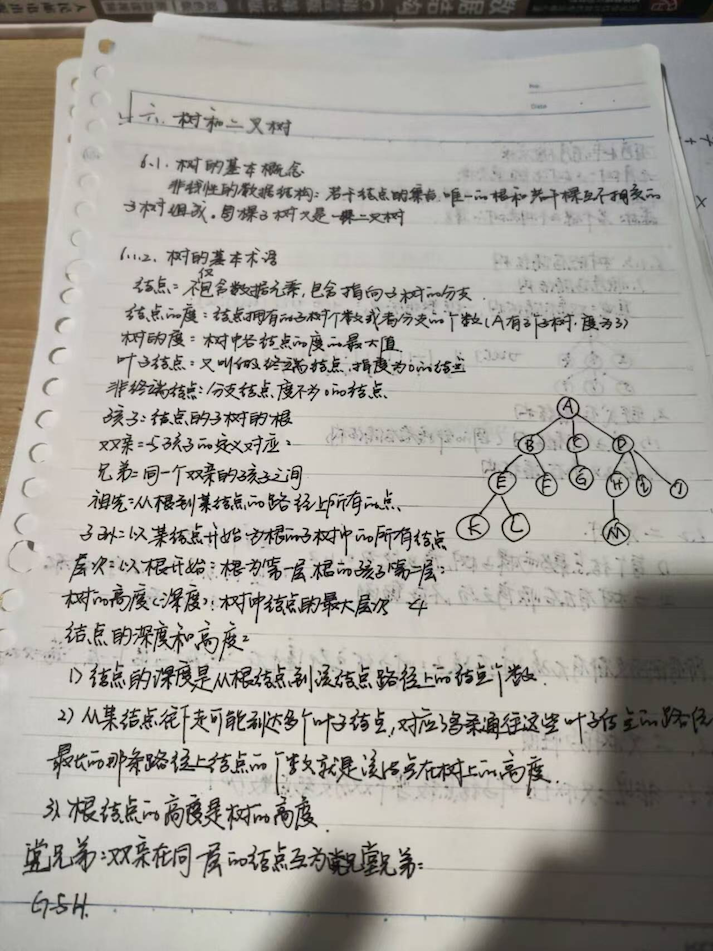 数据结构
六. 树和二叉树
6.1. 树的基本概念
非线性的数据结构: 若干结点的集合, 唯一的根和若干棵互不相交的
子树组成. 每棵子树又是一棵二叉树
6.1.2. 树的基本术语
仅
结点: 不包含数据元素, 包含指向子树的分支.
结点的度: 结点拥有的子树个数或者分支的个数 (A有3个子树, 度为3)
树的度: 树中各结点的度的最大值
叶子结点: 又叫做终端结点, 指度为0的结点
非终端结点: 分支结点, 度不为0的结点
孩子: 结点的子树的根
双亲: 与孩子的定义对应:
兄弟: 同一个双亲的孩子之间
祖先: 从根到某结点的路径上所有的点.
子孙: 以某结点开始为根的子树中的所有结点
层次: 以根开始: 根为第一层 根的孩子第二层:
树的高度(深度): 树中结点的最大层次 4
结点的深度和高度:
1) 结点的深度是从根结点到该结点路径上的结点个数.
2) 从某结点往下走可能到达多个叶子结点, 对应了多条通往这些叶子结点的路径
最长的那条路径上结点的个数就是该结点在树上的高度.
3) 根结点的高度是树的高度.
堂兄弟: 双亲在同一层的结点互为堂兄弟:
G与H.
A
B C D
E F G H I J
K L M
No.
Date